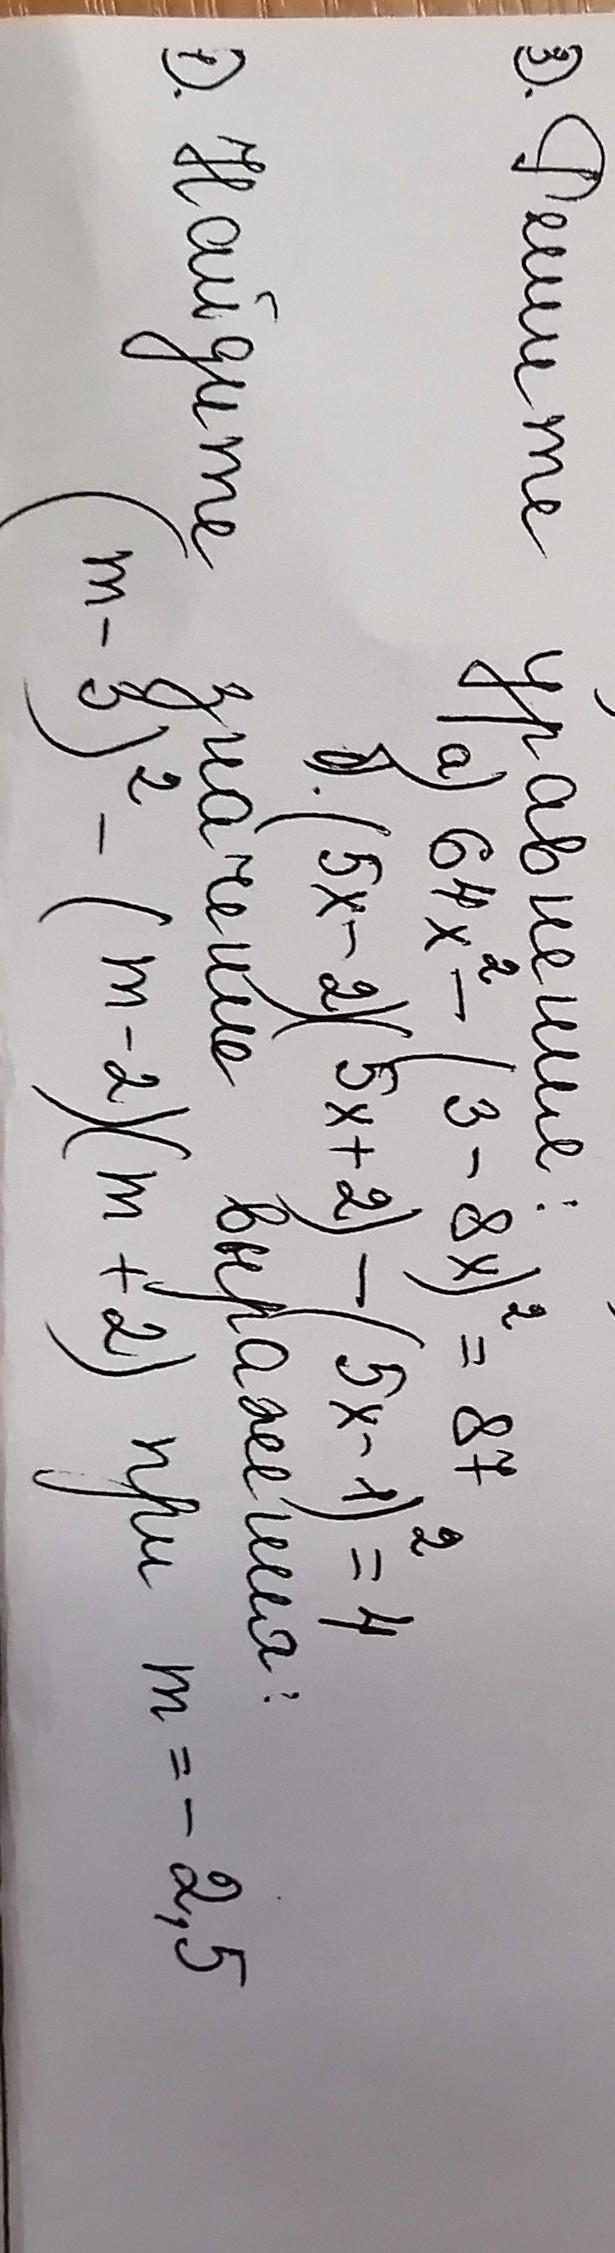 3). Решите уравнение:
а) 64x² - (3 - 8x)² = 87
б). (5x - 2)(5x + 2) - (5x - 1)² = 4
1). Найдите значение выражения:
(m - 3)² - (m - 2)(m + 2) при m = - 2,5